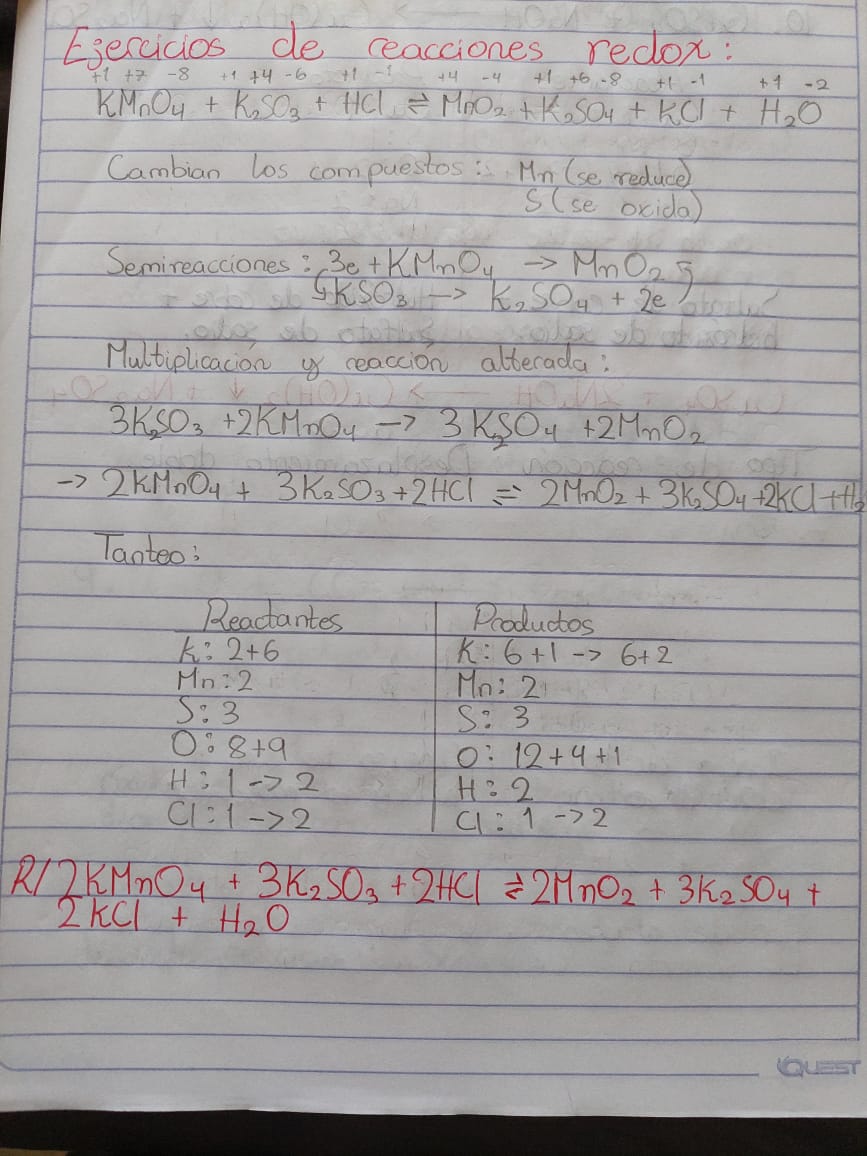 Ejercicios de reacciones redox:
+1 +7 -8 +1 +4 -6 +1 -1 +4 -4 +1 +6 -8 +1 -1 +1 -2
KMnO₄ + K₂SO₃ + HCl ⇌ MnO₂ + K₂SO₄ + KCl + H₂O
Cambian los compuestos: Mn (se reduce)
S (se oxida)
Semireacciones: 3e + KMnO₄ → MnO₂
KSO₃ → K₂SO₄ + 2e
Multiplicación y reacción alterada:
3K₂SO₃ + 2KMnO₄ → 3K₂SO₄ + 2MnO₂
→ 2KMnO₄ + 3K₂SO₃ + 2HCl ⇌ 2MnO₂ + 3K₂SO₄ + 2KCl + H₂
Tanteo:
Reactantes Productos
K: 2+6 K: 6+1 → 6+2
Mn: 2 Mn: 2
S: 3 S: 3
O: 8+9 O: 12+4+1
H: 1 → 2 H: 2
Cl: 1 → 2 Cl: 1 → 2
R/ 2KMnO₄ + 3K₂SO₃ + 2HCl ⇌ 2MnO₂ + 3K₂SO₄ +
2KCl + H₂O
QUEST